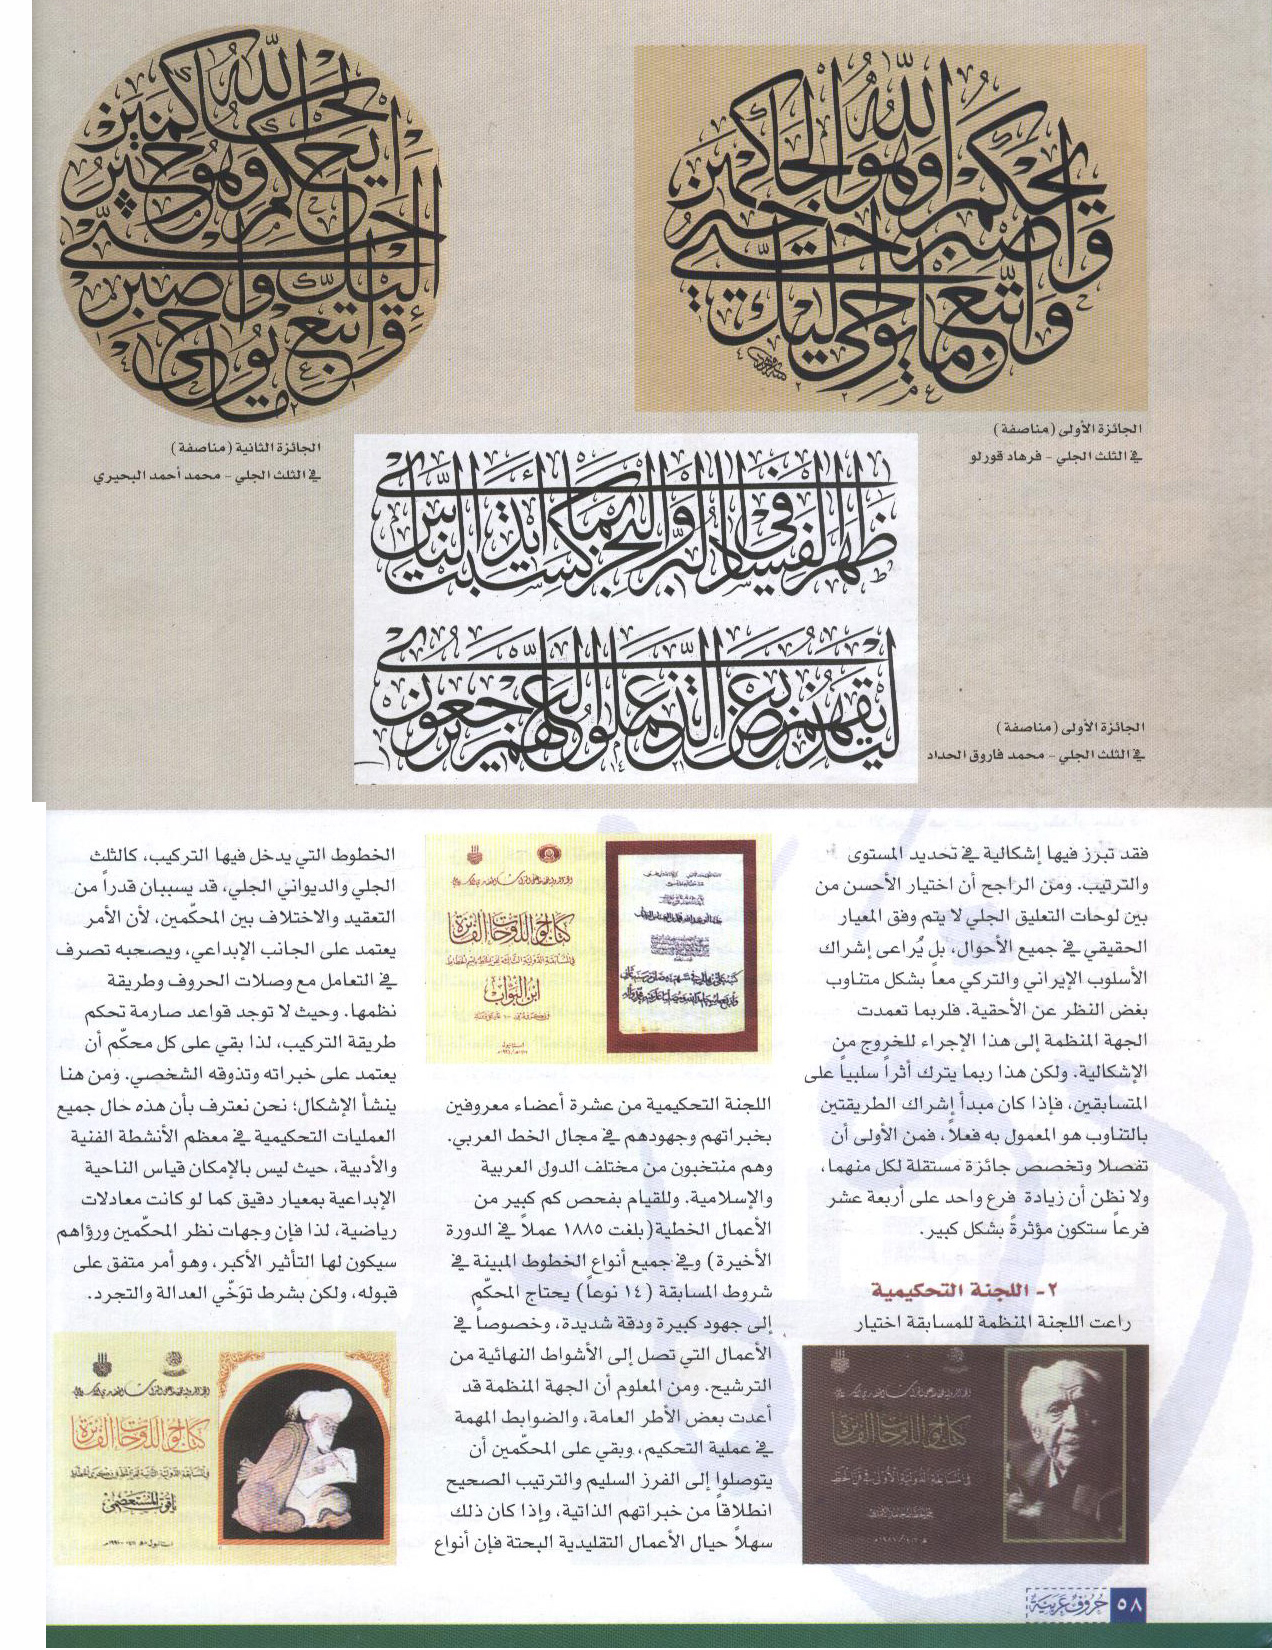 الجائزة الأولى (مناصفة)
في الثلث الجلي - فرهاد قورلو
الجائزة الثانية (مناصفة)
في الثلث الجلي - محمد أحمد البحيري
ظهر الفساد في البر والبحر بما كسبت أيدي الناس
ليذيقهم بعض الذي عملوا لعلهم يرجعون
الجائزة الأولى (مناصفة)
في الثلث الجلي - محمد فاروق الحداد
فقد تبرز فيها إشكالية في تحديد المستوى
والترتيب. ومن الراجح أن اختيار الأحسن من
بين لوحات التعليق الجلي لا يتم وفق المعيار
الحقيقي في جميع الأحوال، بل يُراعى إشراك
الأسلوب الإيراني والتركي معاً بشكل متناوب
بغض النظر عن الأحقية. فلربما تعمدت
الجهة المنظمة إلى هذا الإجراء للخروج من
الإشكالية. ولكن هذا ربما يترك أثراً سلبياً على
المتسابقين، فإذا كان مبدأ إشراك الطريقتين
بالتناوب هو المعمول به فعلاً، فمن الأولى أن
تفصلا وتخصص جائزة مستقلة لكل منهما،
ولا نظن أن زيادة فرع واحد على أربعة عشر
فرعاً ستكون مؤثرةً بشكل كبير.
٢- اللجنة التحكيمية
راعت اللجنة المنظمة للمسابقة اختيار
كتالوج اللوحات الفائزة
في المسابقة الدولية الأولى في فن الخط
كتالوج اللوحات الفائزة
ابن البواب
اللجنة التحكيمية من عشرة أعضاء معروفين
بخبراتهم وجهودهم في مجال الخط العربي.
وهم منتخبون من مختلف الدول العربية
والإسلامية. وللقيام بفحص كم كبير من
الأعمال الخطية( بلغت ١٨٨٥ عملاً في الدورة
الأخيرة) وفي جميع أنواع الخطوط المبينة في
شروط المسابقة (١٤ نوعاً) يحتاج المحكّم
إلى جهود كبيرة ودقة شديدة، وخصوصاً في
الأعمال التي تصل إلى الأشواط النهائية من
الترشيح. ومن المعلوم أن الجهة المنظمة قد
أعدت بعض الأطر العامة، والضوابط المهمة
في عملية التحكيم، وبقي على المحكّمين أن
يتوصلوا إلى الفرز السليم والترتيب الصحيح
انطلاقاً من خبراتهم الذاتية، وإذا كان ذلك
سهلاً حيال الأعمال التقليدية البحتة فإن أنواع
الخطوط التي يدخل فيها التركيب، كالثلث
الجلي والديواني الجلي، قد يسببان قدراً من
التعقيد والاختلاف بين المحكّمين، لأن الأمر
يعتمد على الجانب الإبداعي، ويصحبه تصرف
في التعامل مع وصلات الحروف وطريقة
نظمها. وحيث لا توجد قواعد صارمة تحكم
طريقة التركيب، لذا بقي على كل محكّم أن
يعتمد على خبراته وتذوقه الشخصي. ومن هنا
ينشأ الإشكال؛ نحن نعترف بأن هذه حال جميع
العمليات التحكيمية في معظم الأنشطة الفنية
والأدبية، حيث ليس بالإمكان قياس الناحية
الإبداعية بمعيار دقيق كما لو كانت معادلات
رياضية، لذا فإن وجهات نظر المحكّمين ورؤاهم
سيكون لها التأثير الأكبر، وهو أمر متفق على
قبوله، ولكن بشرط توَخّي العدالة والتجرد.
كتالوج اللوحات الفائزة
ياقوت المستعصمي
٥٨
حروف عربية